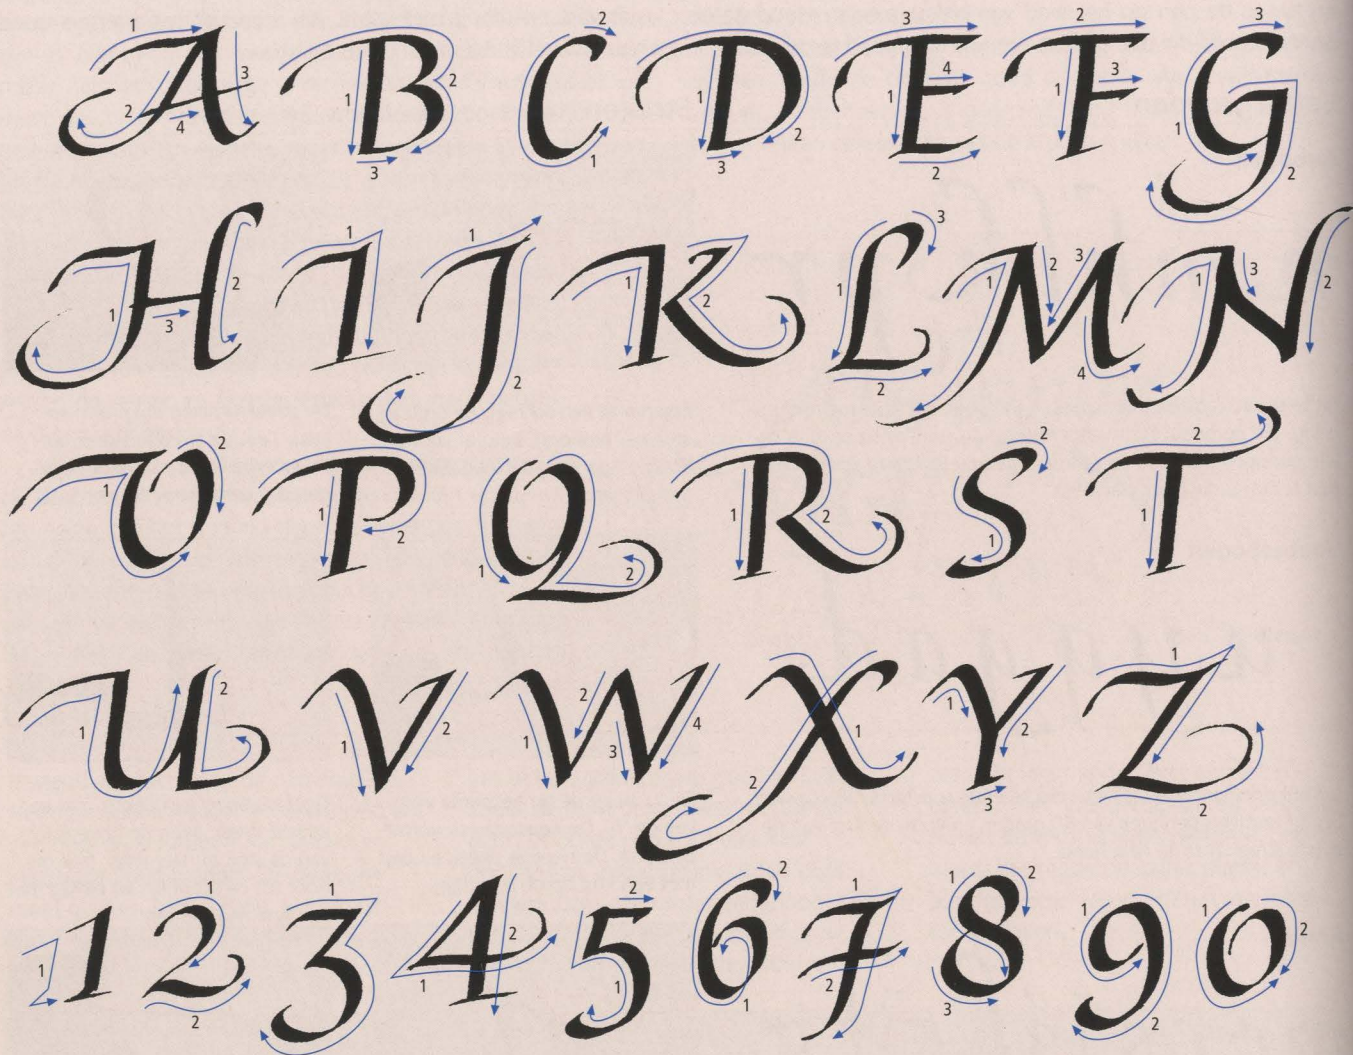 A B C D E F G
H I J K L M N
O P Q R S T
U V W X Y Z
1 2 3 4 5 6 7 8 9 0